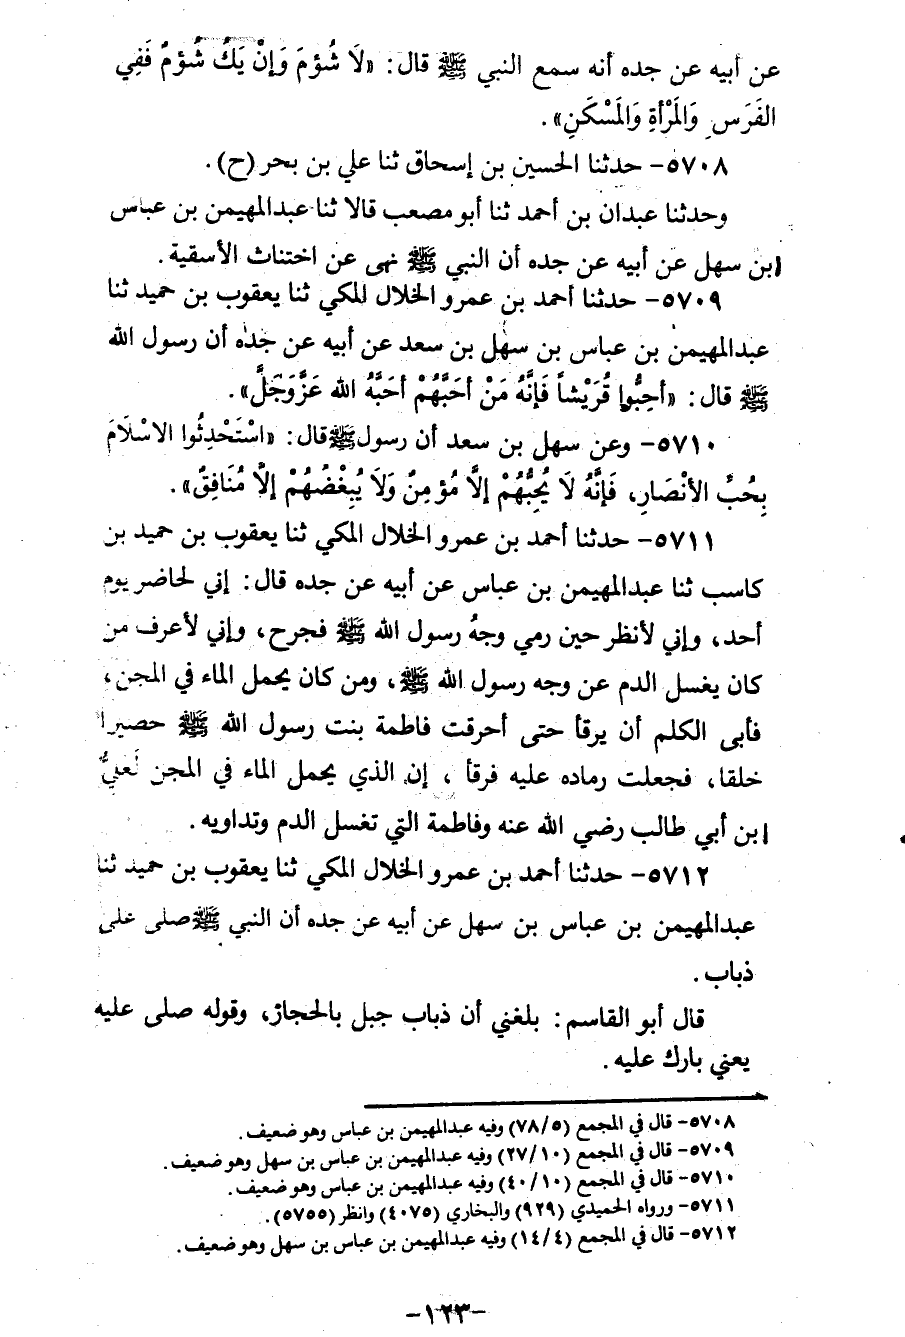 عن أبيه عن جده أنه سمع النبي ﷺ قال: «لَا شُؤمَ وَإنْ يَكُ شُؤمٌ فَفِي
الفَرَسِ وَالمَرْأةِ وَالمَسْكَنِ».
٥٧٠٨- حدثنا الحسين بن إسحاق ثنا علي بن بحر (ح).
وحدثنا عبدان بن أحمد ثنا أبو مصعب قالا ثنا عبدالمهيمن بن عباس
ابن سهل عن أبيه عن جده أن النبي ﷺ نهى عن اختناث الأسقية.
٥٧٠٩- حدثنا أحمد بن عمرو الخلال المكي ثنا يعقوب بن حميد ثنا
عبدالمهيمن بن عباس بن سهل بن سعد عن أبيه عن جده أن رسول الله
ﷺ قال: «أحِبُّوا قُرَيْشاً فَإنَّهُ مَنْ أحَبَّهُمْ أحَبَّهُ الله عَزَّوَجَلَّ».
٥٧١٠- وعن سهل بن سعد أن رسول ﷺ قال: «اسْتَحْدِثُوا الاسْلَامَ
بِحُبِّ الأنْصَارِ، فَإنَّهُ لَا يُحِبُّهُمْ إلَّا مُؤمِنٌ وَلَا يُبِغْضُهُمْ إلَّا مُنَافِقٌ».
٥٧١١- حدثنا أحمد بن عمرو الخلال المكي ثنا يعقوب بن حميد بن
كاسب ثنا عبدالمهيمن بن عباس عن أبيه عن جده قال: إني لحاضر يوم
أحد، وإني لأنظر حين رمي وجهُ رسول الله ﷺ فجرح، وإني لأعرف من
كان يغسل الدم عن وجه رسول الله ﷺ، ومن كان يحمل الماء في المجن،
فأبى الكلم أن يرقأ حتى أحرقت فاطمة بنت رسول الله ﷺ حصيرا
خلقا، فجعلت رماده عليه فرقأ، إن الذي يحمل الماء في المجن لَعليُّ
ابن أبي طالب رضي الله عنه وفاطمة التي تغسل الدم وتداويه.
٥٧١٢- حدثنا أحمد بن عمرو الخلال المكي ثنا يعقوب بن حميد ثنا
عبدالمهيمن بن عباس بن سهل عن أبيه عن جده أن النبي ﷺ صلى على
ذباب.
قال أبو القاسم: بلغني أن ذباب جبل بالحجاز، وقوله صلى عليه
يعني بارك عليه.
٥٧٠٨- قال في المجمع (٧٨/٥) وفيه عبدالمهيمن بن عباس وهو ضعيف.
٥٧٠٩- قال في المجمع (٢٧/١٠) وفيه عبدالمهيمن بن عباس بن سهل وهو ضعيف.
٥٧١٠- قال في المجمع (٤٠/١٠) وفيه عبدالمهيمن بن عباس وهو ضعيف.
٥٧١١- ورواه الحميدي (٩٢٩) والبخاري (٤٠٧٥) وانظر (٥٧٥٥).
٥٧١٢- قال في المجمع (١٤/٤) وفيه عبدالمهيمن بن عباس بن سهل وهو ضعيف.
-١٢٣-